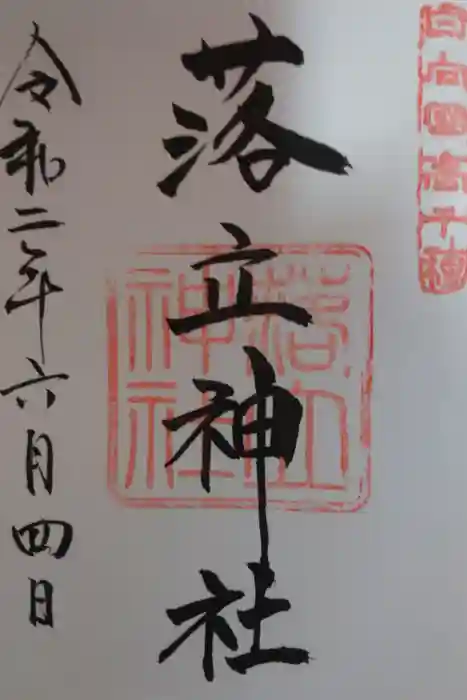 日向國高千穂
落立神社
落立神社
令和二年六月四日